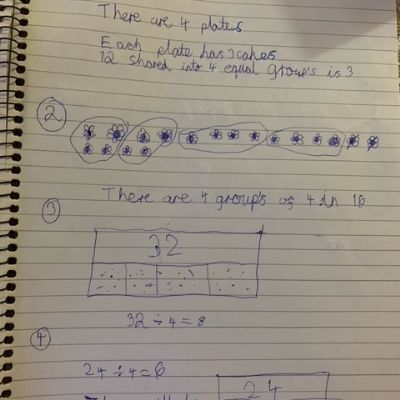 There are 4 plates
Each plate has 3 cakes
12 shared into 4 equal group's is 3
2
There are 4 group's of 4 in 16
3
32
32 ÷ 4 = 8
4
24 ÷ 4 = 6
24